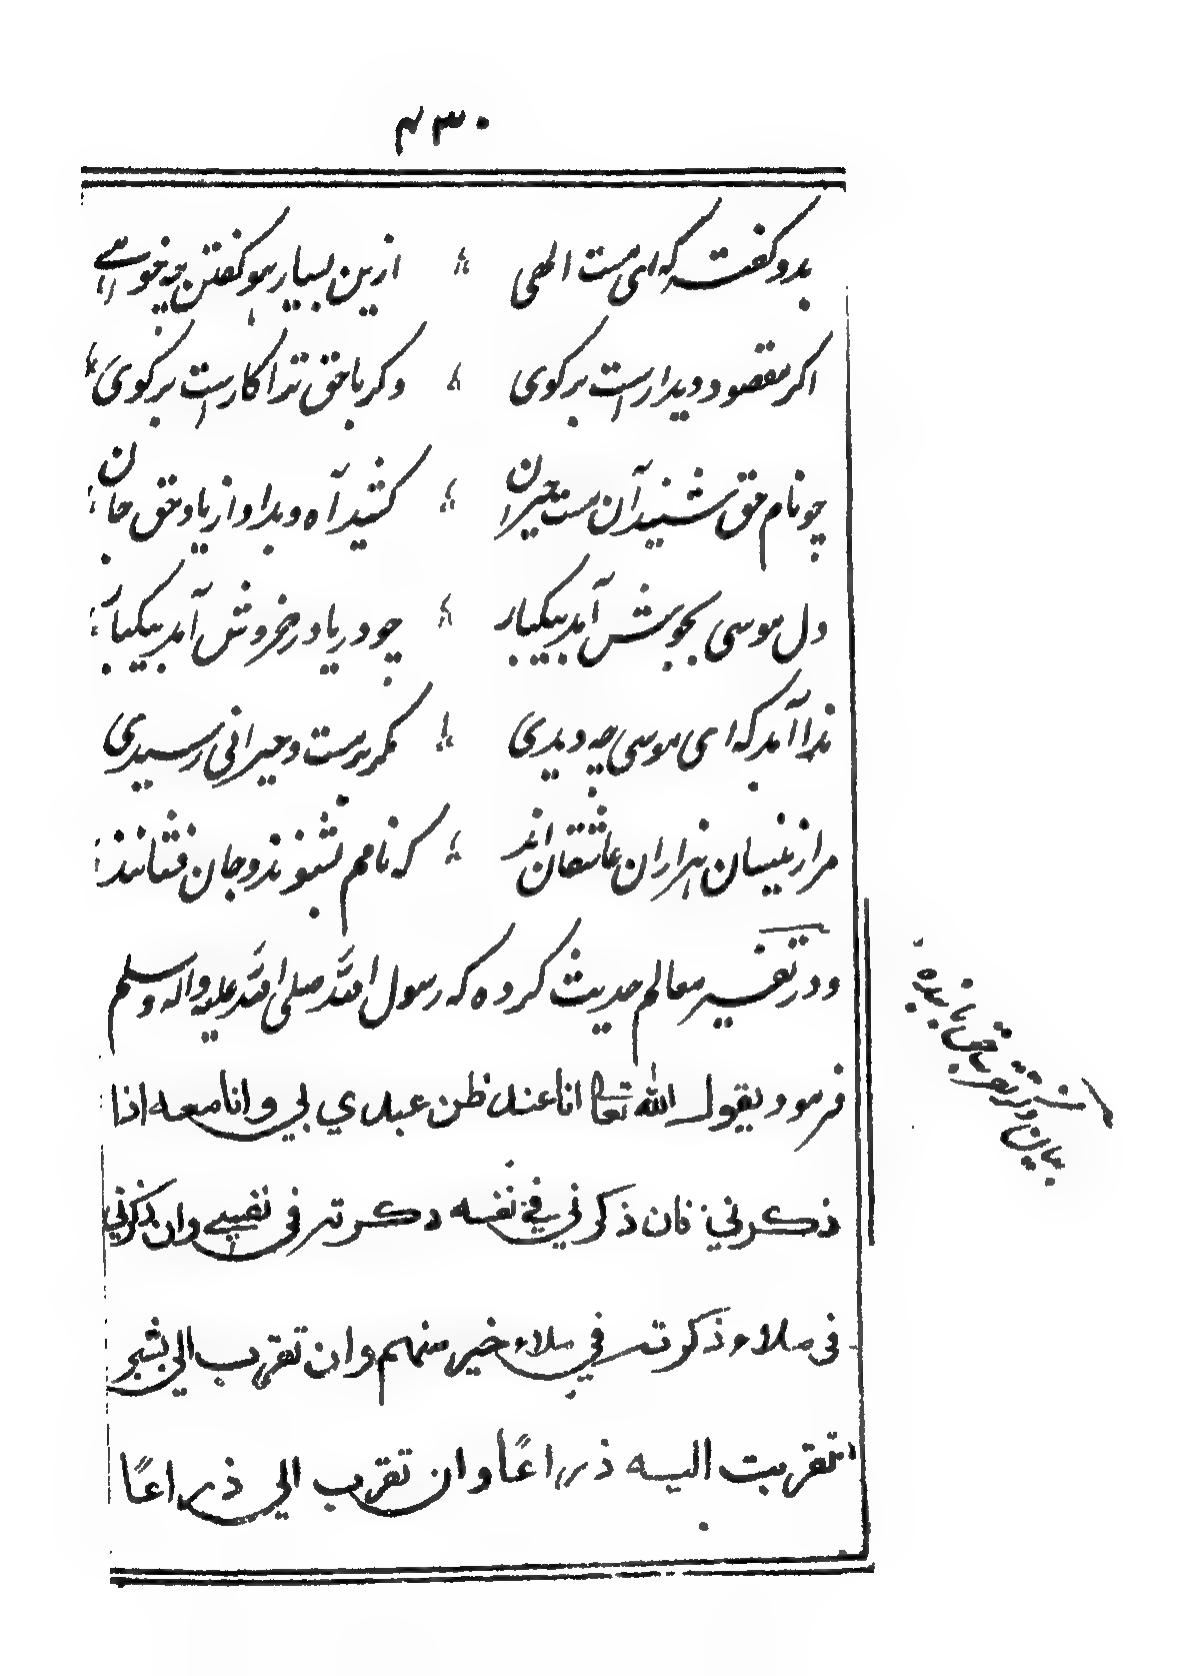 ۴۳۰
بدو گفت که ای مست الهی ؛ ازین بسیار هو گفتن چه خواهی
اگر مقصود دیدارست برگوی ؛ وگر با حق ترا کارست برگوی
چو نام حق شنید آن مست حیران ؛ کشید آه و بداد از یاد حق جان
دل موسی بجوش آمد بیکبار ؛ چو دریا در خروش آمد بیکبار
ندا آمد که ای موسی چه دیدی ؛ مگر بر مست و حیرانی رسیدی
مرا زینسان هزاران عاشقان اند ؛ که نامم بشنوند و جان فشانند
و در تفسیر معالم حدیث کرده که رسول الله صلی الله علیه واله وسلم
فرمود یقول الله تعا انا عند ظن عبدي بي وانا معه اذا
ذكرني فان ذكرني في نفسه ذكرته في نفسي وان ذكرني
في ملاء ذكرته في ملاء خير منهم وان تقرب الي بشبر
تقربت اليه ذراعًا وان تقرب الي ذراعًا
بیان ذکر تقرب حق با بنده